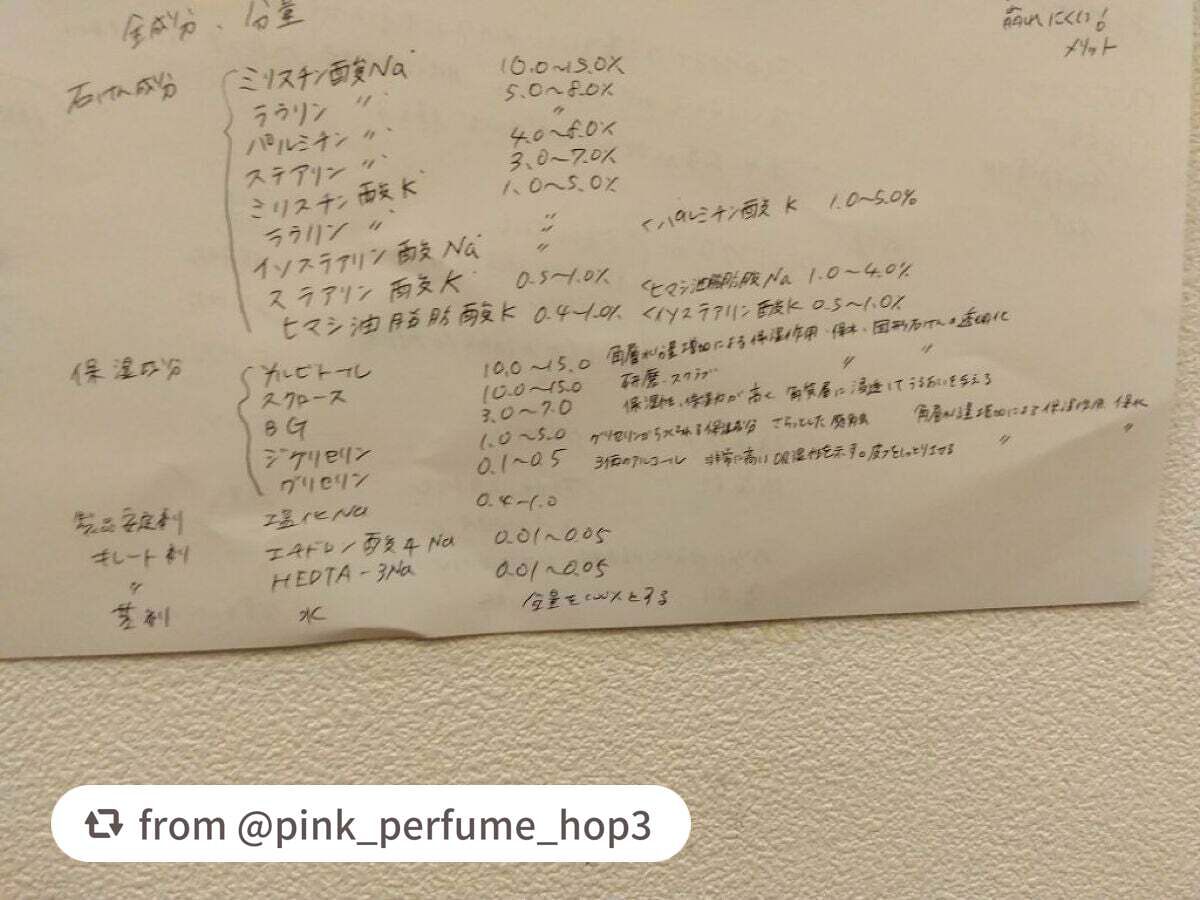 全成分、分量
崩れにくい!
メリット
石けん成分 ミリスチン酸Na 10.0~15.0%
ラウリン 〃 5.0~8.0%
パルミチン 〃 〃
ステアリン 〃 4.0~8.0%
ミリスチン酸K 3.0~7.0%
ラウリン 〃 1.0~5.0%
イソステアリン酸Na 〃 <パルミチン酸K 1.0~5.0%
ステアリン酸K 〃
ヒマシ油脂肪酸K 0.5~1.0% <ヒマシ油脂肪酸Na 1.0~4.0%
0.4~1.0% <イソステアリン酸K 0.5~1.0%
保湿成分 ソルビトール 10.0~15.0 角層水分量増加による保湿作用・保水・固形石けんの透明化
スクロース 10.0~15.0 研磨・スクラブ 〃 〃
BG 3.0~7.0 保湿性、保 が高く角質層に浸透してうるおいを与える
ジグリセリン 1.0~5.0 グリセリンから られる保湿成分 さらっとした 角層水分量増加による保湿作用 保水
グリセリン 0.1~0.5 3価のアルコール 非常に高い吸湿性を示す。皮フをしっとりさせる 〃 〃
製品安定剤 塩化Na 0.4~1.0
キレート剤 エチドロン酸4Na 0.01~0.05
〃 HEDTA-3Na 0.01~0.05
基剤 水 全量を100%とする
from @pink_perfume_hop3